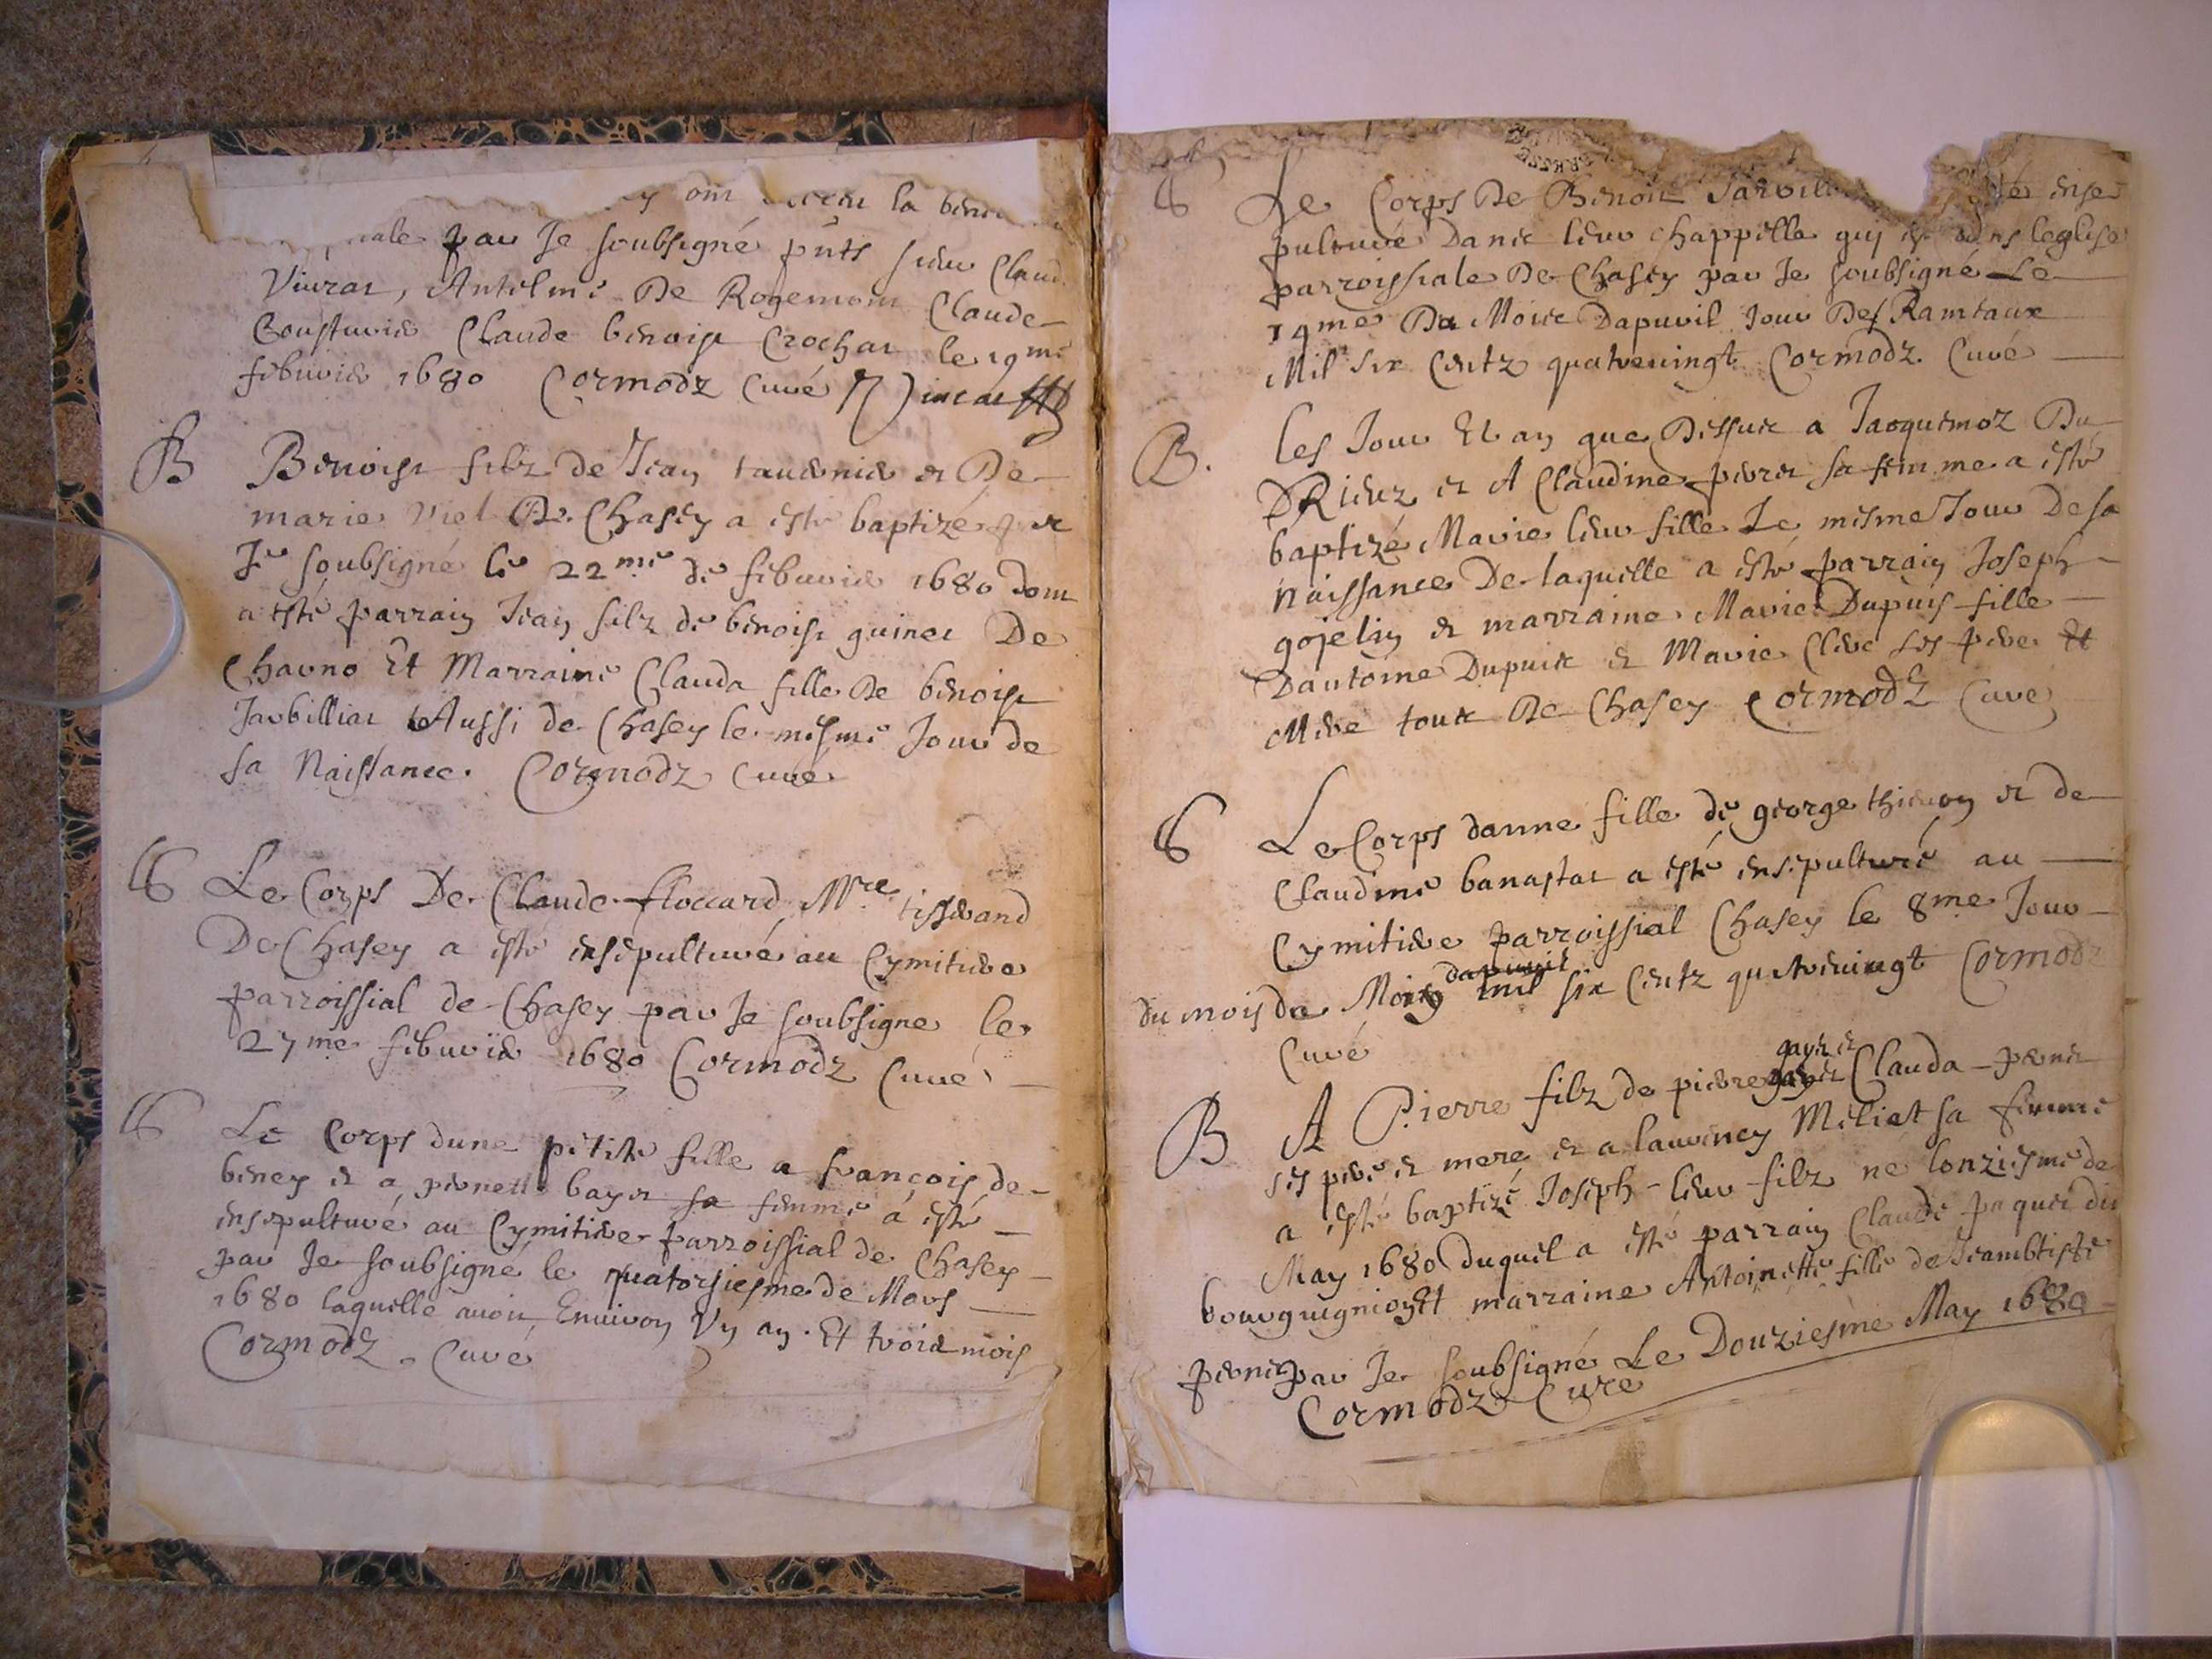 y ont receu la bened
iale par Je soubsigné pñts sieur Claud
Viuvrat, Antelme De Rogemont Claude
Cousturier Claude benoist Crochat le 19me
febuvier 1680 Cormodz Curé
B Benoist filz de Jean tauernier et De
marie Viel De Chasey a esté baptizé par
Je soubsigné le 22me de febuvier 1680 dont
a esté parrain Jean filz de benoist guinet De
Charno Et Marraine Clauda fille De benoist
Jarbilliat Aussi de Chasey le mesme Jour de
sa Naissance. Cormodz Curé
Le Corps De Claude floccard Mre tisserand
De Chasey a esté ensepulturé au Cymitiere
parroissial de Chasey par Je soubsigné le
27me febuvier 1680 Cormodz Curé
Le Corps dune petite fille a françois de
beney et a pernette bayet sa femme à esté
ensepulturé au Cymitiere parroissial de Chasey
par Je soubsigné le quatorsiesme de Mars
1680 laquelle auoit Enuiron Vn an. Et trois mois
Cormodz. Curé
Le Corps De Benoit Jarvill é ense
pulturé Dans leur chappelle quj est dans leglise
parroissiale De Chasey par Je soubsigné Le
14me Du Mois Dapuril Jour Des Rameaux
Mil six Centz quatreuingt Cormodz. Curé
B. Les Jour Et an que Dessus a Jaquemoz Du
DRieuz et A Claudine perret sa femme a esté
baptizé Marie leur fille Le mesme Jour De sa
Naissance De laquelle a esté parrain Joseph
gojelin et marraine Marie Dupuis fille
Dantoine Dupuis et Marie Clerc ses pere Et
Mere tous De Chasey Cormodz Curé
Le Corps danne fille de george thieuon et de
Claudine banastat a esté ensepulturé au
Cymitiere parroissial Chasey le 8me Jour
du mois de May mil six Centz quatreuingt Cormodz
Curé
gayet et
B A Pierre filz de pierre Clauda pernet
ses pere et mere et a laurency Meliet sa femme
a esté baptizé Joseph leur filz ne lonziesme de
May 1680 duquel a esté parrain Claude paquet du
bourguignion Et marraine Antoinette fille de Jeambtiste
pernet par Je soubsigné Le Douziesme May 1680
Cormodz Cure